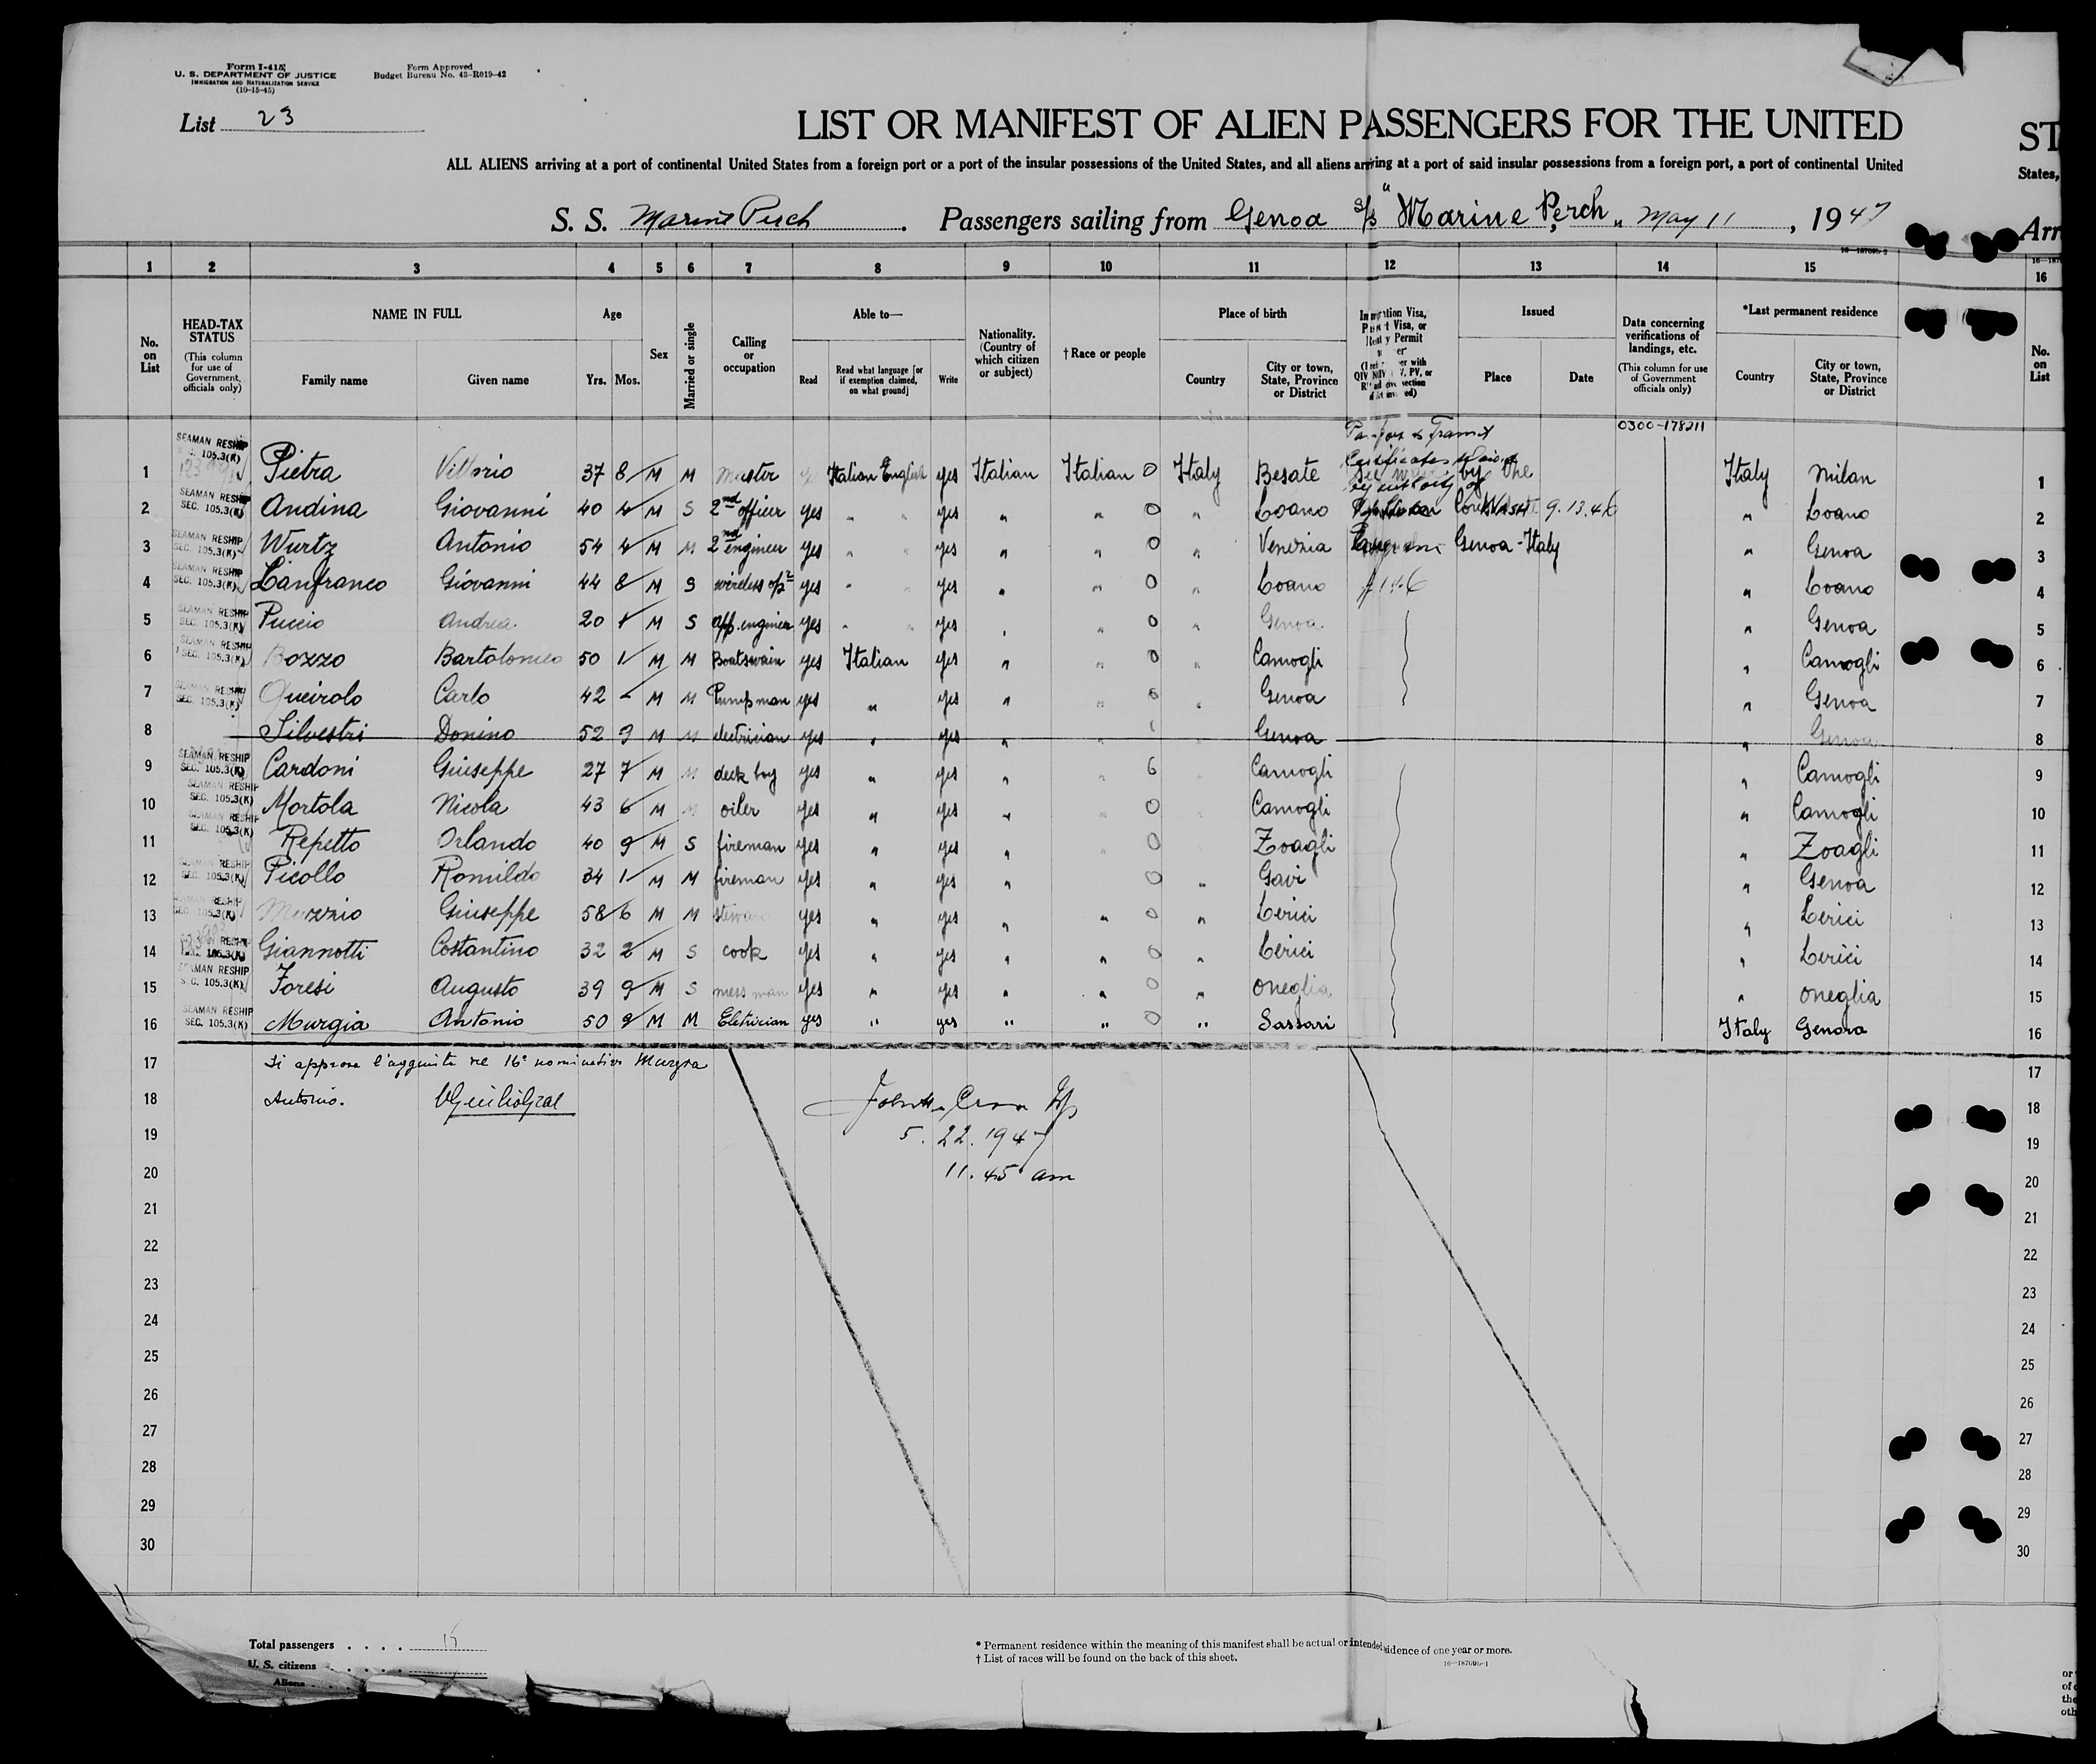 Form I-415
U. S. DEPARTMENT OF JUSTICE
IMMIGRATION AND NATURALIZATION SERVICE
(10-15-45)
Form Approved
Budget Bureau No. 43-R019-42
List 23
LIST OR MANIFEST OF ALIEN PASSENGERS FOR THE UNITED ST
ALL ALIENS arriving at a port of continental United States from a foreign port or a port of the insular possessions of the United States, and all aliens arriving at a port of said insular possessions from a foreign port, a port of continental United States,
S. S. Marine Perch. Passengers sailing from Genoa s/s "Marine Perch", May 11, 1947 Arr
16—18769b-2
1 2 3 4 5 6 7 8 9 10 11 12 13 14 15 16
No. on List
HEAD-TAX STATUS (This column for use of Government officials only)
NAME IN FULL Family name Given name
Age Yrs. Mos.
Sex
Married or single
Calling or occupation
Able to— Read Read what language [or if exemption claimed, on what ground] Write
Nationality. (Country of which citizen or subject)
† Race or people
Place of birth Country City or town, State, Province or District
Issued Place Date
Data concerning verifications of landings, etc. (This column for use of Government officials only)
*Last permanent residence Country City or town, State, Province or District
No. on List
0300-178211
Transit
Certificates
by the
by authority of
9.13.46
Genoa - Italy
1 SEAMAN RESHIP 105.3(K) Pietra Vittorio 37 8 M M master Italian English yes Italian Italian O Italy Besate Italy Milan 1
2 SEAMAN RESHIP SEC. 105.3(K) Andina Giovanni 40 4 M S 2nd officer yes " " yes " " O " Loano " Loano 2
3 SEAMAN RESHIP SEC. 105.3(K) Wurtz Antonio 54 4 M M 2nd engineer yes " " yes " " O " Venezia " Genoa 3
4 SEAMAN RESHIP SEC. 105.3(K) Lanfranco Giovanni 44 8 M S wireless opr yes " " yes " " O " Loano " Loano 4
5 SEAMAN RESHIP SEC. 105.3(K) Puccio Andrea 20 1 M S app. engineer yes " " yes " " O " Genoa " Genoa 5
6 SEAMAN RESHIP SEC. 105.3(K) Bozzo Bartolomeo 50 1 M M Boatswain yes Italian yes " " O " Camogli " Camogli 6
7 SEAMAN RESHIP SEC. 105.3(K) Queirolo Carlo 42 - M M Pumpman yes " yes " " O " Genoa " Genoa 7
8 Silvestri Donino 52 9 M M electrician yes " yes " " Genoa " Genoa 8
9 SEAMAN RESHIP SEC. 105.3(K) Cardoni Giuseppe 27 7 M M deck boy yes " yes " " O Camogli " Camogli 9
10 SEAMAN RESHIP SEC. 105.3(K) Mortola Nicola 43 6 M M oiler yes " yes " " O Camogli " Camogli 10
11 SEAMAN RESHIP SEC. 105.3(K) Repetto Orlando 40 9 M S fireman yes " yes " " O Zoagli " Zoagli 11
12 SEAMAN RESHIP SEC. 105.3(K) Picollo Romildo 34 1 M M fireman yes " yes " O " Gavi " Genoa 12
13 SEAMAN RESHIP SEC. 105.3(K) Giuseppe 58 6 M M yes " yes " " O " Lerici " Lerici 13
14 RESHIP 105.3(K) Giannotti Costantino 32 2 M S cook yes " yes " " O " Lerici " Lerici 14
15 SEAMAN RESHIP SEC. 105.3(K) Foresi Augusto 39 9 M S mess man yes " yes " " O " Oneglia " Oneglia 15
16 SEAMAN RESHIP SEC. 105.3(K) Murgia Antonio 50 9 M M Eletrician yes " yes " " O " Sassari Italy Genova 16
17 Si approva l'aggiunta del 16° nominativo Murgia 17
18 Antonio. 18
19 5.22.1947 19
20 11.45 am 20
21 21
22 22
23 23
24 24
25 25
26 26
27 27
28 28
29 29
30 30
Total passengers . . . . 15
U. S. citizens . . . .
Aliens . . . .
* Permanent residence within the meaning of this manifest shall be actual or intended residence of one year or more.
† List of races will be found on the back of this sheet.
16—18769b-1